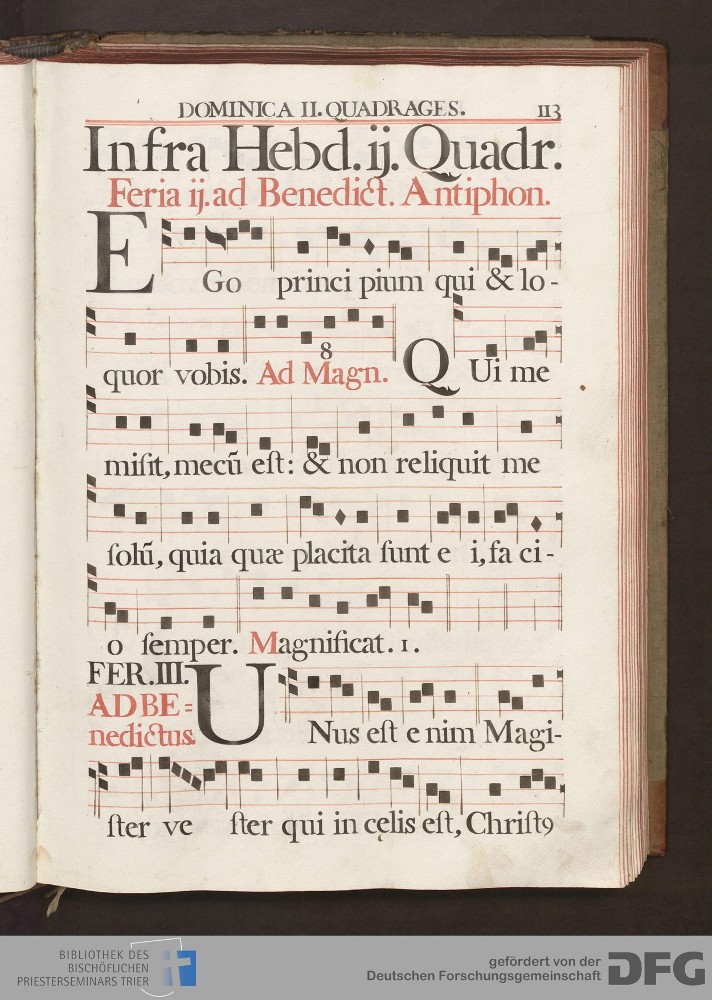 DOMINICA II. QUADRAGES. 113
Infra Hebd. ij. Quadr.
Feria ij. ad Benedict. Antiphon.
EGo princi pium qui & lo-
quor vobis. Ad Magn. 8 QUi me
miſit, mecū eſt: & non reliquit me
ſolū, quia quæ placita ſunt e i, fa ci-
o ſemper. Magnificat. 1.
FER. III.
AD BE=
nedictus.
UNus eſt e nim Magi-
ſter ve ſter qui in cęlis eſt, Chriſtꝰ
BIBLIOTHEK DES
BISCHÖFLICHEN
PRIESTERSEMINARS TRIER
gefördert von der
Deutschen Forschungsgemeinschaft
DFG